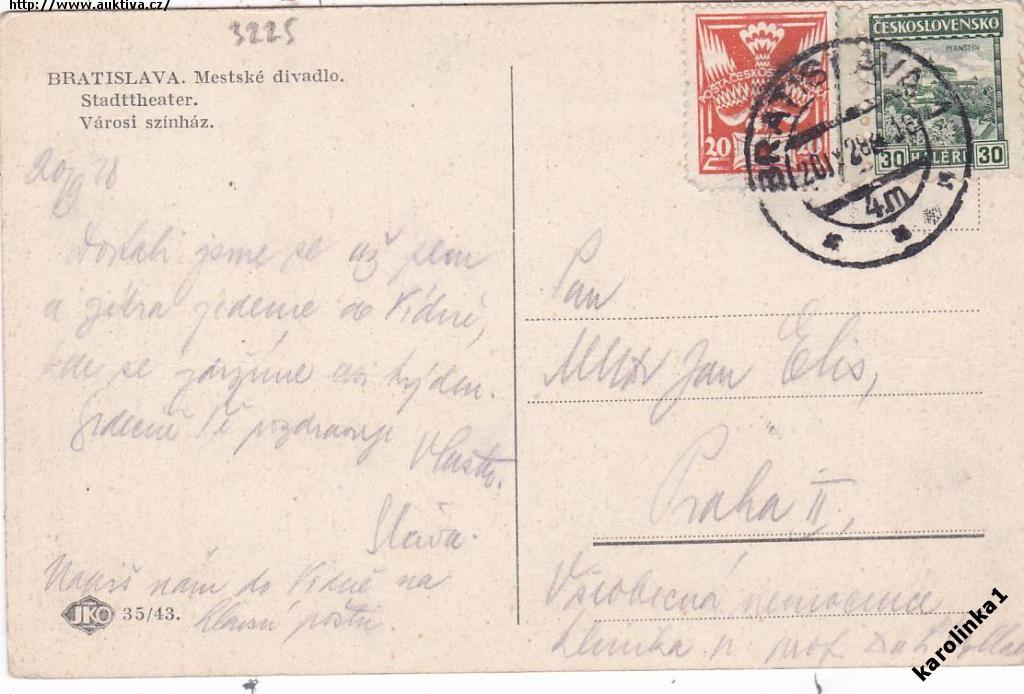 http://www.auktiva.cz/
3225
BRATISLAVA. Mestské divadlo.
Stadttheater.
Városi színház.
20/ 28
Dostali jsme se až sem
a zítra jedeme do Vídně,
kde se zdržíme asi týden.
Srdečně Tě pozdravuje
Vlasta.
Sláva.
Napiš nám do Vídně na
hlavní poštu.
JKO 35/43.
POŠTA ČESKOSLOVENSKÁ
20 20
ČESKOSLOVENSKO
PERNŠTEJN
30 HALÉŘŮ 30
BRATISLAVA 1
4m
Pan
MUDr Jan Elis,
Praha II,
Všeobecná nemocnice
klinika p. prof. Dr
karolinka1